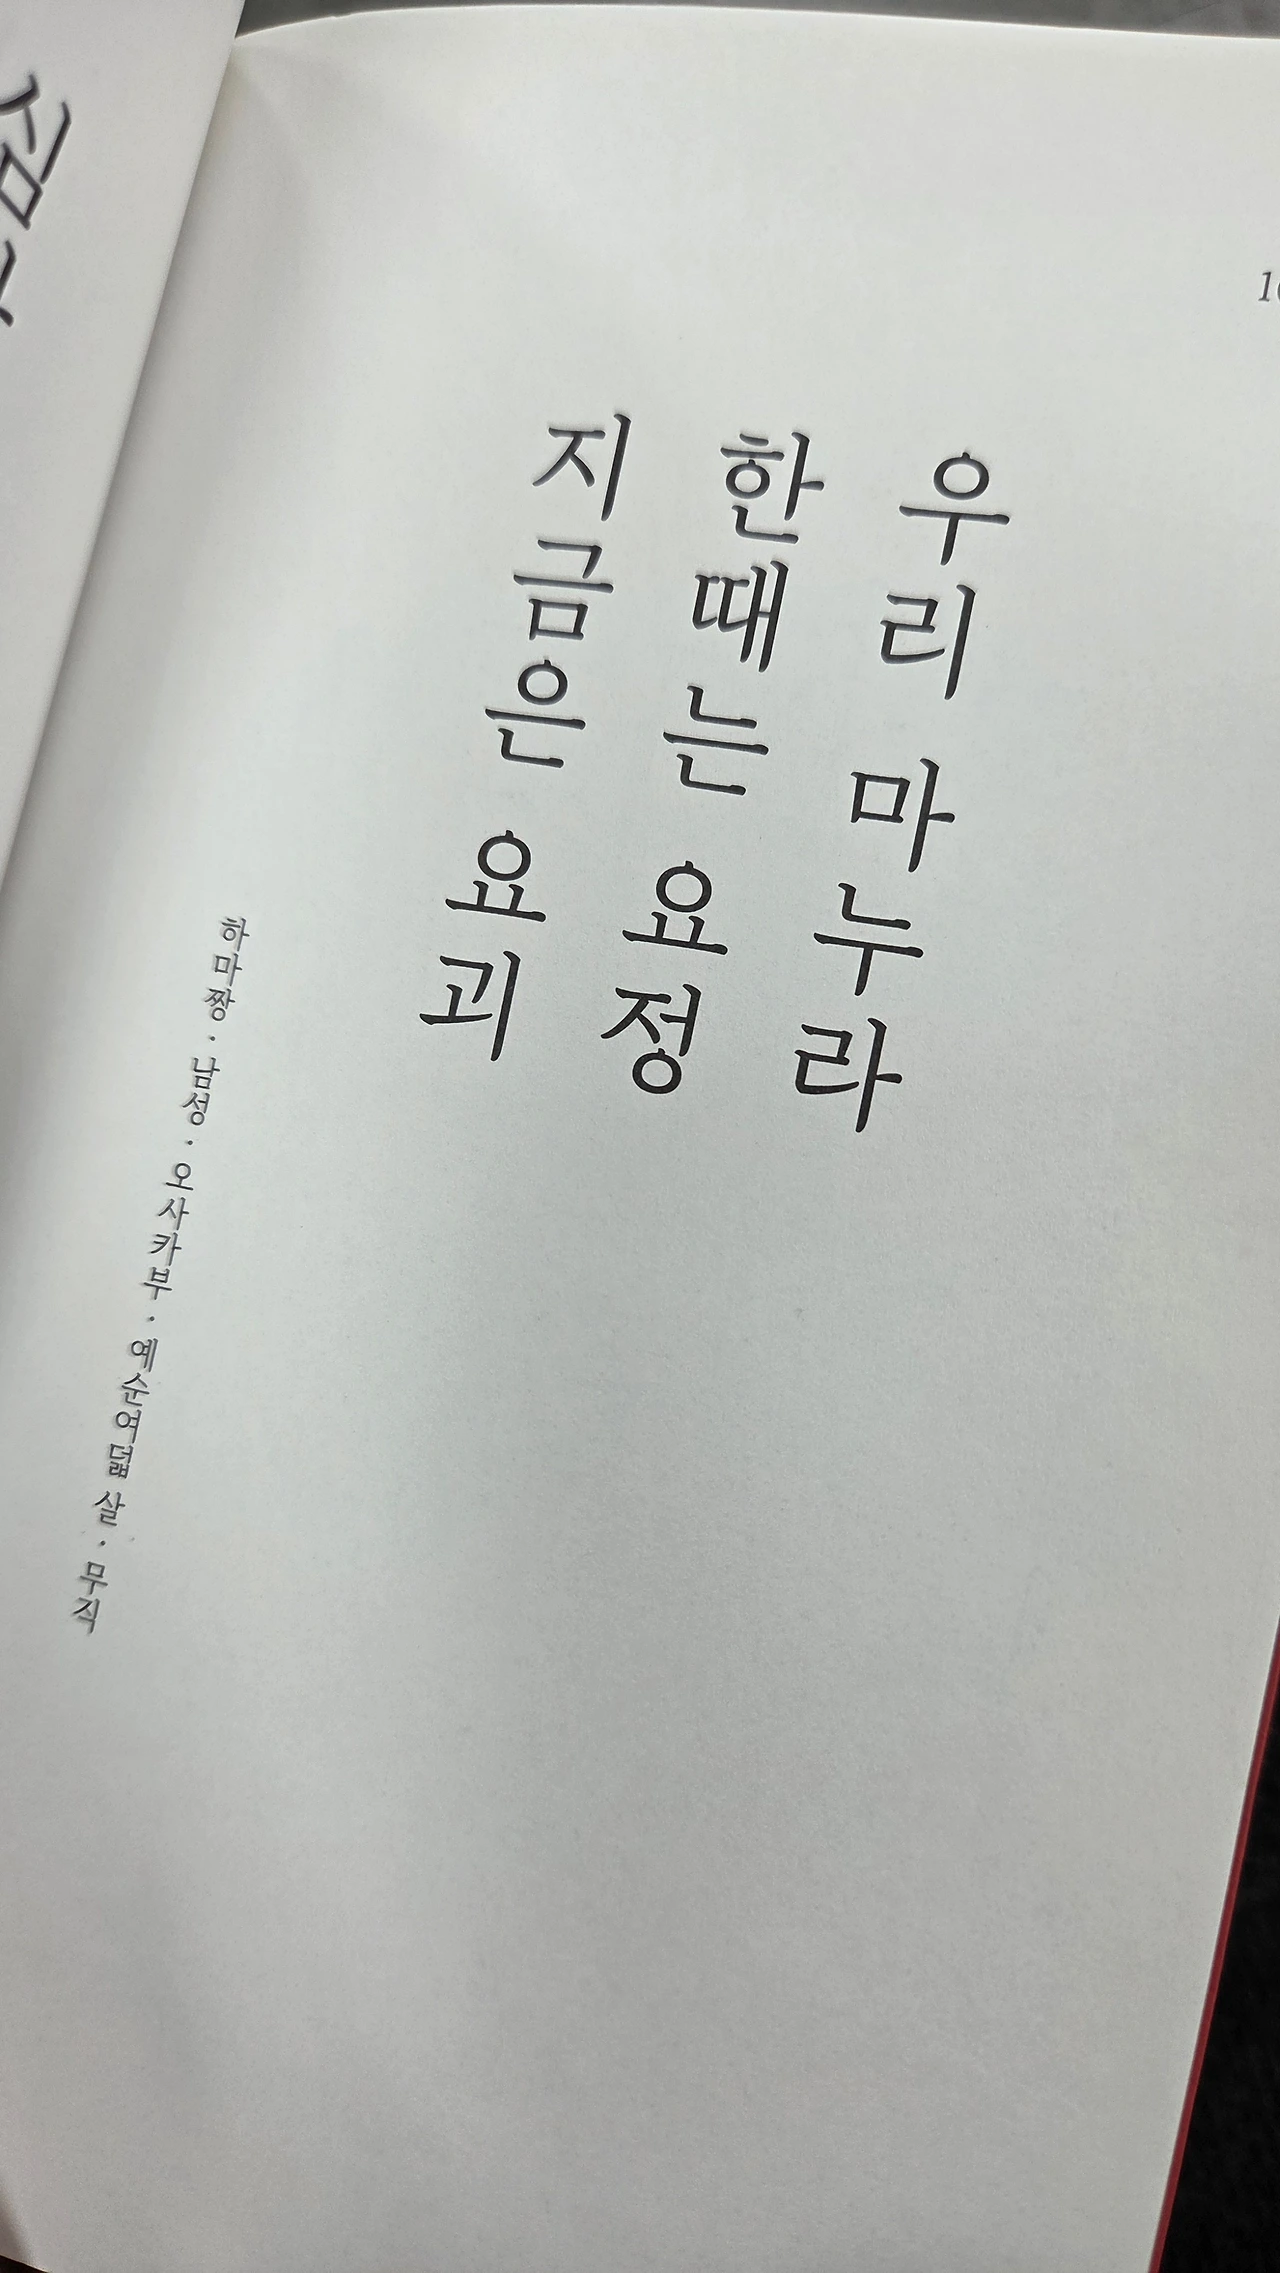 우리 마누라
한때는 요정
지금은 요괴
하마짱·남성·오사카부·예순여덟 살·무직